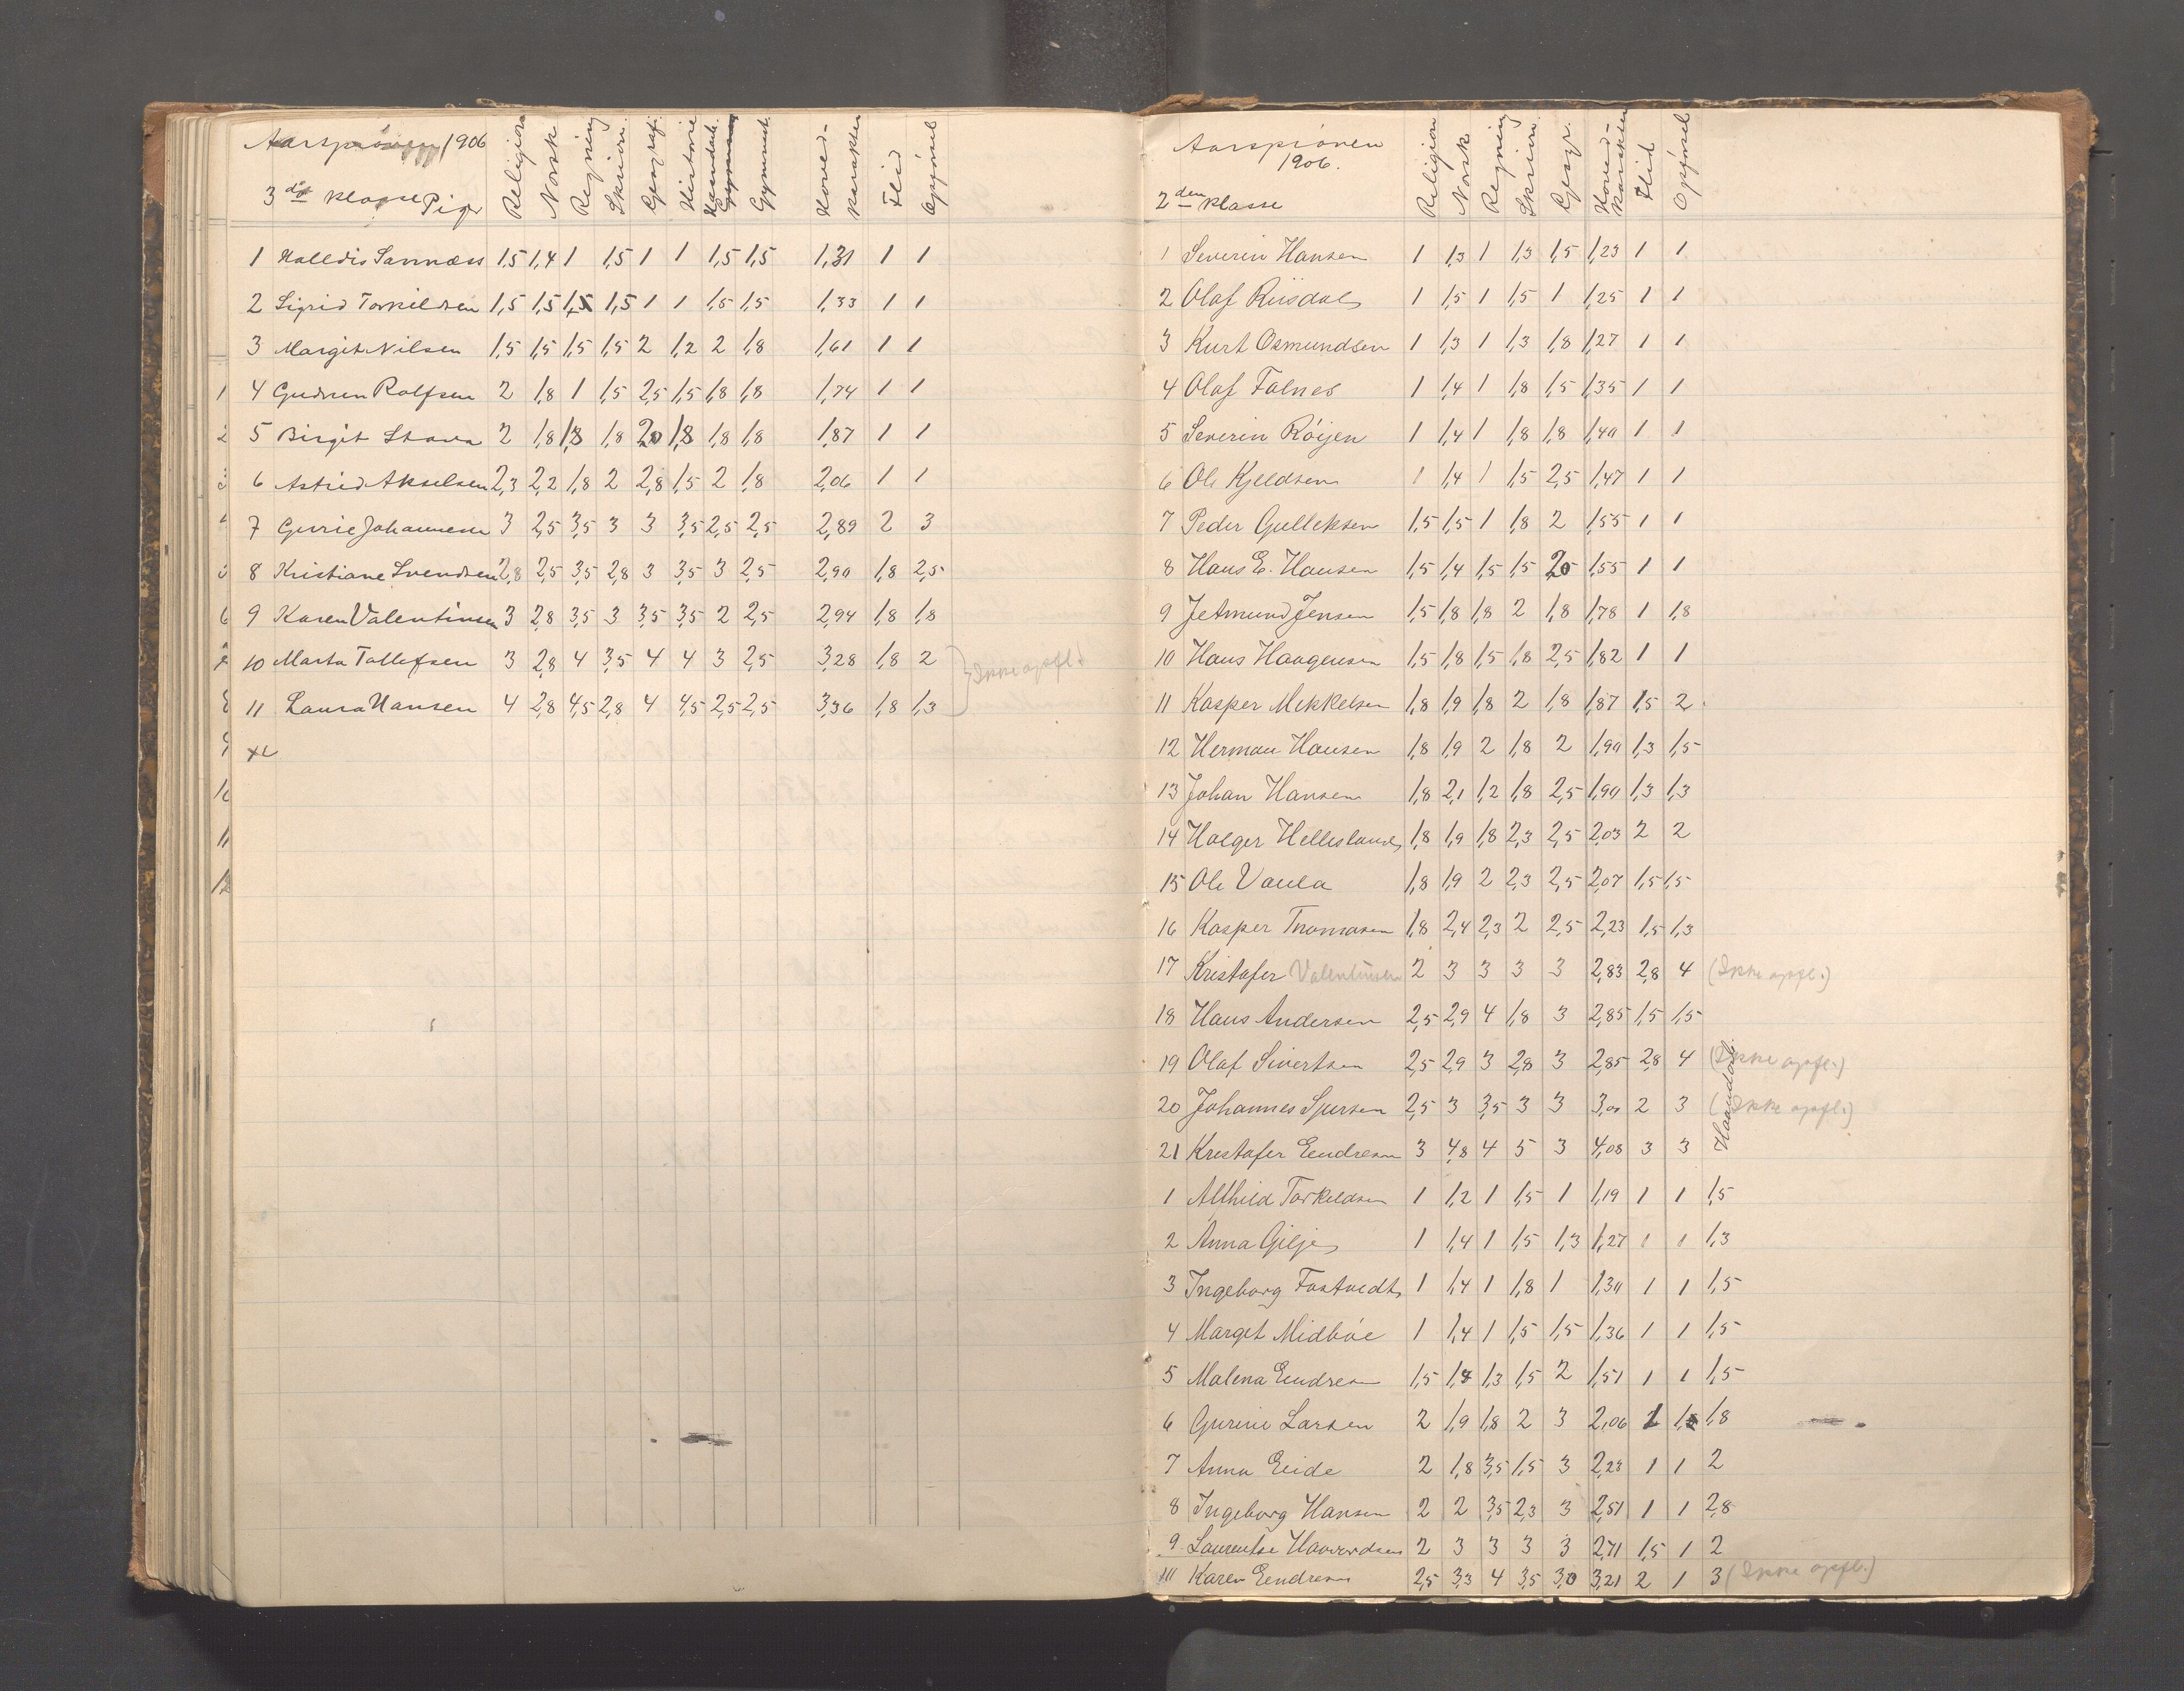 Aarsprøven 1906
3die Klasse Piger
Religion Norsk Regning Skrivn. Geograf. Historie Haandarb. Gymnast. Hoved-karakter Flid Opførsel
1 Halldis Sannæss 1,5 1,4 1 1,5 1 1 1,5 1,5 1,31 1 1
2 Sigrid Torkildsen 1,5 1,5 1,5 1,5 1 1 1,5 1,5 1,33 1 1
3 Margit Nilsen 1,5 1,5 1,5 1,5 2 1,2 2 1,8 1,61 1 1
1 4 Gudrun Rolfsen 2 1,8 1 1,5 2,5 1,5 1,8 1,8 1,74 1 1
2 5 Birgit Stava 2 1,8 1,8 1,8 2,0 1,8 1,8 1,8 1,87 1 1
3 6 Astrid Akselsen 2,3 2,2 1,8 2 2,8 1,5 2 1,8 2,06 1 1
4 7 Gurie Johannesen 3 2,5 3,5 3 3 3,5 2,5 2,5 2,89 2 3
5 8 Kristiane Svendsen 2,8 2,5 3,5 2,8 3 3,5 3 2,5 2,90 1,8 2,5
6 9 Karen Valentinsen 3 2,8 3,5 3 3,5 3,5 2 2,5 2,94 1,8 1,8
7 10 Marta Tollefsen 3 2,8 4 3,5 4 4 3 2,5 3,28 1,8 2 } Ikke opfl.
8 11 Laura Hansen 4 2,8 4,5 2,8 4 4,5 2,5 2,5 3,36 1,8 1,3
9
10
11
12
Aarsprøven
1906.
2den Klasse
Religion Norsk Regning Skrivn. Geogr. Hoved-karakter Flid Opførsel
1 Severin Hansen 1 1,3 1 1,3 1,5 1,23 1 1
2 Olaf Riisdal 1 1,5 1 1,5 1 1,25 1 1
3 Kurt Osmundsen 1 1,3 1 1,3 1,8 1,27 1 1
4 Olaf Falnes 1 1,4 1 1,8 1,5 1,35 1 1
5 Severin Röijen 1 1,4 1 1,8 1,8 1,40 1 1
6 Ole Kjeldsen 1 1,4 1 1,5 2,5 1,47 1 1
7 Peder Gulleksen 1,5 1,5 1 1,8 2 1,55 1 1
8 Hans E. Hansen 1,5 1,4 1,5 1,5 2,0 1,55 1 1
9 Jetmund Jensen 1,5 1,8 1,8 2 1,8 1,78 1 1,8
10 Hans Haagensen 1,5 1,8 1,5 1,8 2,5 1,82 1 1
11 Kasper Mikkelsen 1,8 1,9 1,8 2 1,8 1,87 1,5 2
12 Herman Hansen 1,8 1,9 2 1,8 2 1,90 1,3 1,5
13 Johan Hansen 1,8 2,1 1,2 1,8 2,5 1,90 1,3 1,3
14 Holger Hellesland 1,8 1,9 1,8 2,3 2,5 2,03 2 2
15 Ole Vaula 1,8 1,9 2 2,3 2,5 2,07 1,5 1,5
16 Kasper Thomasen 1,8 2,4 2,3 2 2,5 2,23 1,5 1,3
17 Kristofer Valentinsen 2 3 3 3 3 2,83 2,8 4 (Ikke opfl.)
18 Hans Andersen 2,5 2,9 4 1,8 3 2,85 1,5 1,5
19 Olaf Sivertsen 2,5 2,9 3 2,8 3 2,85 2,8 4 (Ikke opfl.)
20 Johannes Sjursen 2,5 3 3,5 3 3 3,00 2 3 (Ikke opfl.)
21 Kristofer Endresen 3 4,8 4 5 3 4,08 3 3 Haandarb.
1 Alfhild Torkildsen 1 1,2 1 1,5 1 1,19 1 1 1,5
2 Anna Gilje 1 1,4 1 1,5 1,3 1,27 1 1 1,3
3 Ingeborg Fostvedt 1 1,4 1 1,8 1 1,30 1 1 1,5
4 Marget Midbøe 1 1,4 1 1,5 1,5 1,36 1 1 1,5
5 Malena Endresen 1,5 1,8 1,3 1,5 2 1,51 1 1 1,5
6 Gurine Larsen 2 1,9 1,8 2 3 2,06 1 1,5 1,8
7 Anna Eide 2 1,8 3,5 1,5 3 2,23 1 1 2
8 Ingeborg Hansen 2 2 3,5 2,3 3 2,51 1 1 2,8
9 Laurentse Haavardsen 2 3 3 3 3 2,71 1,5 1 2
10 Karen Endresen 2,5 3,3 4 3,5 3,0 3,21 2 1 3 (Ikke opfl.)